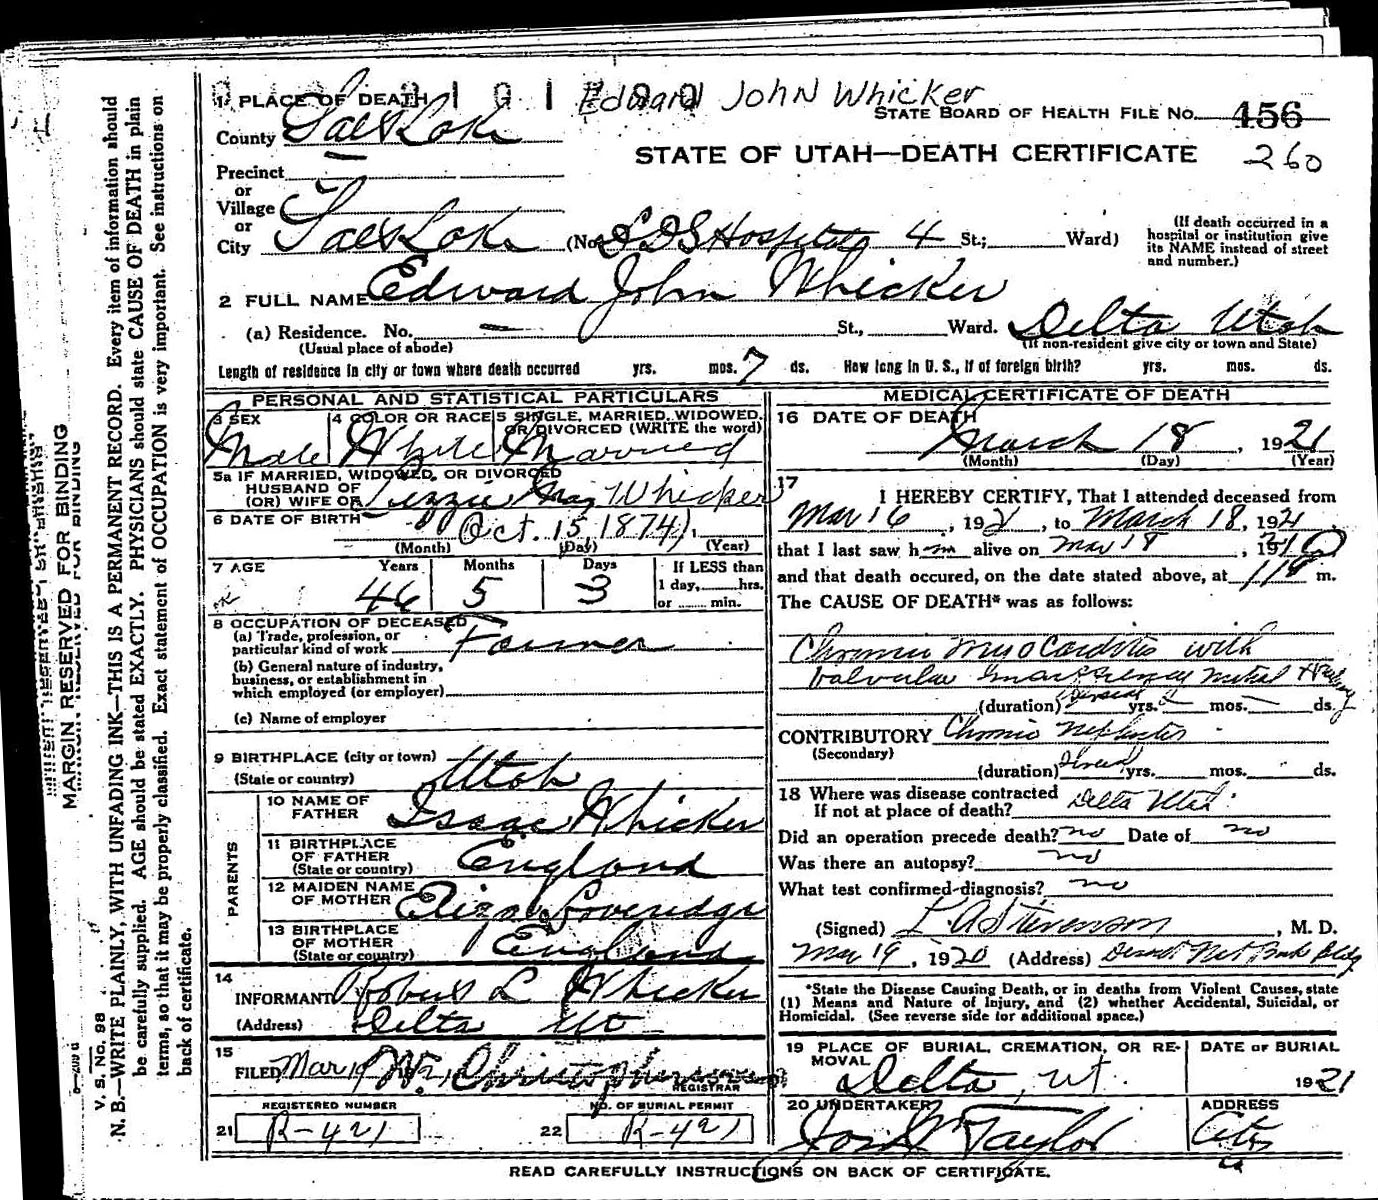 1 PLACE OF DEATH Edward John Whicker
STATE BOARD OF HEALTH FILE No. 456
County Salt Lake
STATE OF UTAH—DEATH CERTIFICATE 260
Precinct
or
Village
or
City Salt Lake (No. L D S Hospital 4 St.; Ward)
(If death occurred in a
hospital or institution give
its NAME instead of street
and number.)
2 FULL NAME Edward John Whicker
(a) Residence. No. — St., Ward. Delta Utah
(Usual place of abode) (If non-resident give city or town and State)
Length of residence in city or town where death occurred yrs. mos. 7 ds. How long in U. S., if of foreign birth? yrs. mos. ds.
PERSONAL AND STATISTICAL PARTICULARS
3 SEX 4 COLOR OR RACE 5 SINGLE, MARRIED, WIDOWED,
OR DIVORCED (WRITE the word)
Male White Married
5a IF MARRIED, WIDOWED, OR DIVORCED
HUSBAND OF
(OR) WIFE OF Lizzie May Whicker
6 DATE OF BIRTH Oct. 15, 1874
(Month) (Day) (Year)
7 AGE Years Months Days If LESS than
1 day, hrs.
46 5 3 or min.
8 OCCUPATION OF DECEASED
(a) Trade, profession, or
particular kind of work Farmer
(b) General nature of industry,
business, or establishment in
which employed (or employer)
(c) Name of employer
9 BIRTHPLACE (city or town)
(State or country) Utah
PARENTS
10 NAME OF
FATHER Isaac Whicker
11 BIRTHPLACE
OF FATHER
(State or country) England
12 MAIDEN NAME
OF MOTHER Eliza Loveridge
13 BIRTHPLACE
OF MOTHER
(State or country) England
14
INFORMANT Robert L Whicker
(Address) Delta Ut
15
FILED Mar 19 Christopherson
REGISTRAR
REGISTERED NUMBER NO. OF BURIAL PERMIT
21 R-421 22 R-421
MEDICAL CERTIFICATE OF DEATH
16 DATE OF DEATH
March 18, 1921
(Month) (Day) (Year)
17
I HEREBY CERTIFY, That I attended deceased from
Mar 16, 192, to March 18, 1921
that I last saw h m alive on Mar 18, 19
and that death occured, on the date stated above, at m.
The CAUSE OF DEATH* was as follows:
Chronic myocarditis with
valvular mitral
(duration) Several yrs. — mos. — ds.
CONTRIBUTORY Chronic Nephritis
(Secondary)
(duration) Several yrs. mos. ds.
18 Where was disease contracted
If not at place of death? Delta Utah
Did an operation precede death? no Date of no
Was there an autopsy? no
What test confirmed diagnosis? no
(Signed) L A Stevenson, M. D.
Mar 19, 1920 (Address) Deseret Nat Bank Bldg
*State the Disease Causing Death, or in deaths from Violent Causes, state
(1) Means and Nature of Injury, and (2) whether Accidental, Suicidal, or
Homicidal. (See reverse side for additional space.)
19 PLACE OF BURIAL, CREMATION, OR RE-
MOVAL DATE OF BURIAL
Delta, Ut. 1921
20 UNDERTAKER ADDRESS
Taylor City
READ CAREFULLY INSTRUCTIONS ON BACK OF CERTIFICATE.
MARGIN RESERVED FOR BINDING
V. S. No. 98
N. B.—WRITE PLAINLY, WITH UNFADING INK—THIS IS A PERMANENT RECORD. Every item of information should
be carefully supplied. AGE should be stated EXACTLY. PHYSICIANS should state CAUSE OF DEATH in plain
terms, so that it may be properly classified. Exact statement of OCCUPATION is very important. See instructions on
back of certificate.